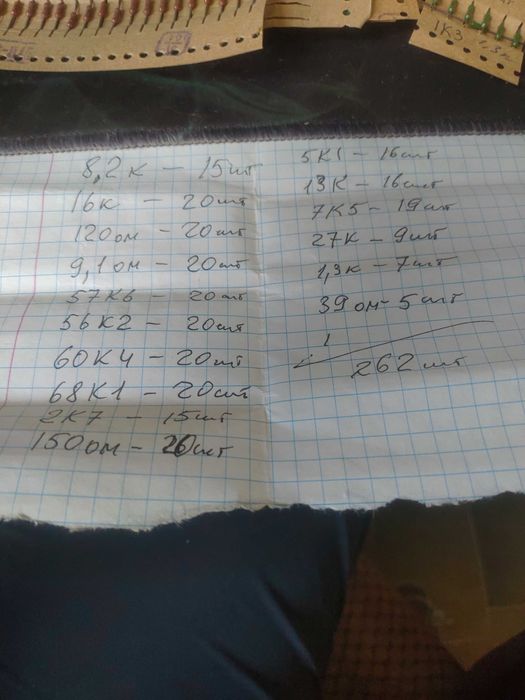 1К3
8,2к – 15шт
16к – 20шт
120ом – 20шт
9,1ом – 20шт
57К6 – 20шт
56К2 – 20шт
60К4 – 20шт
68К1 – 20шт
2К7 – 15шт
150ом – 26шт
5К1 – 16шт
13К – 16шт
7К5 – 19шт
27К – 9шт
1,3к – 7шт
39ом – 5шт
262шт